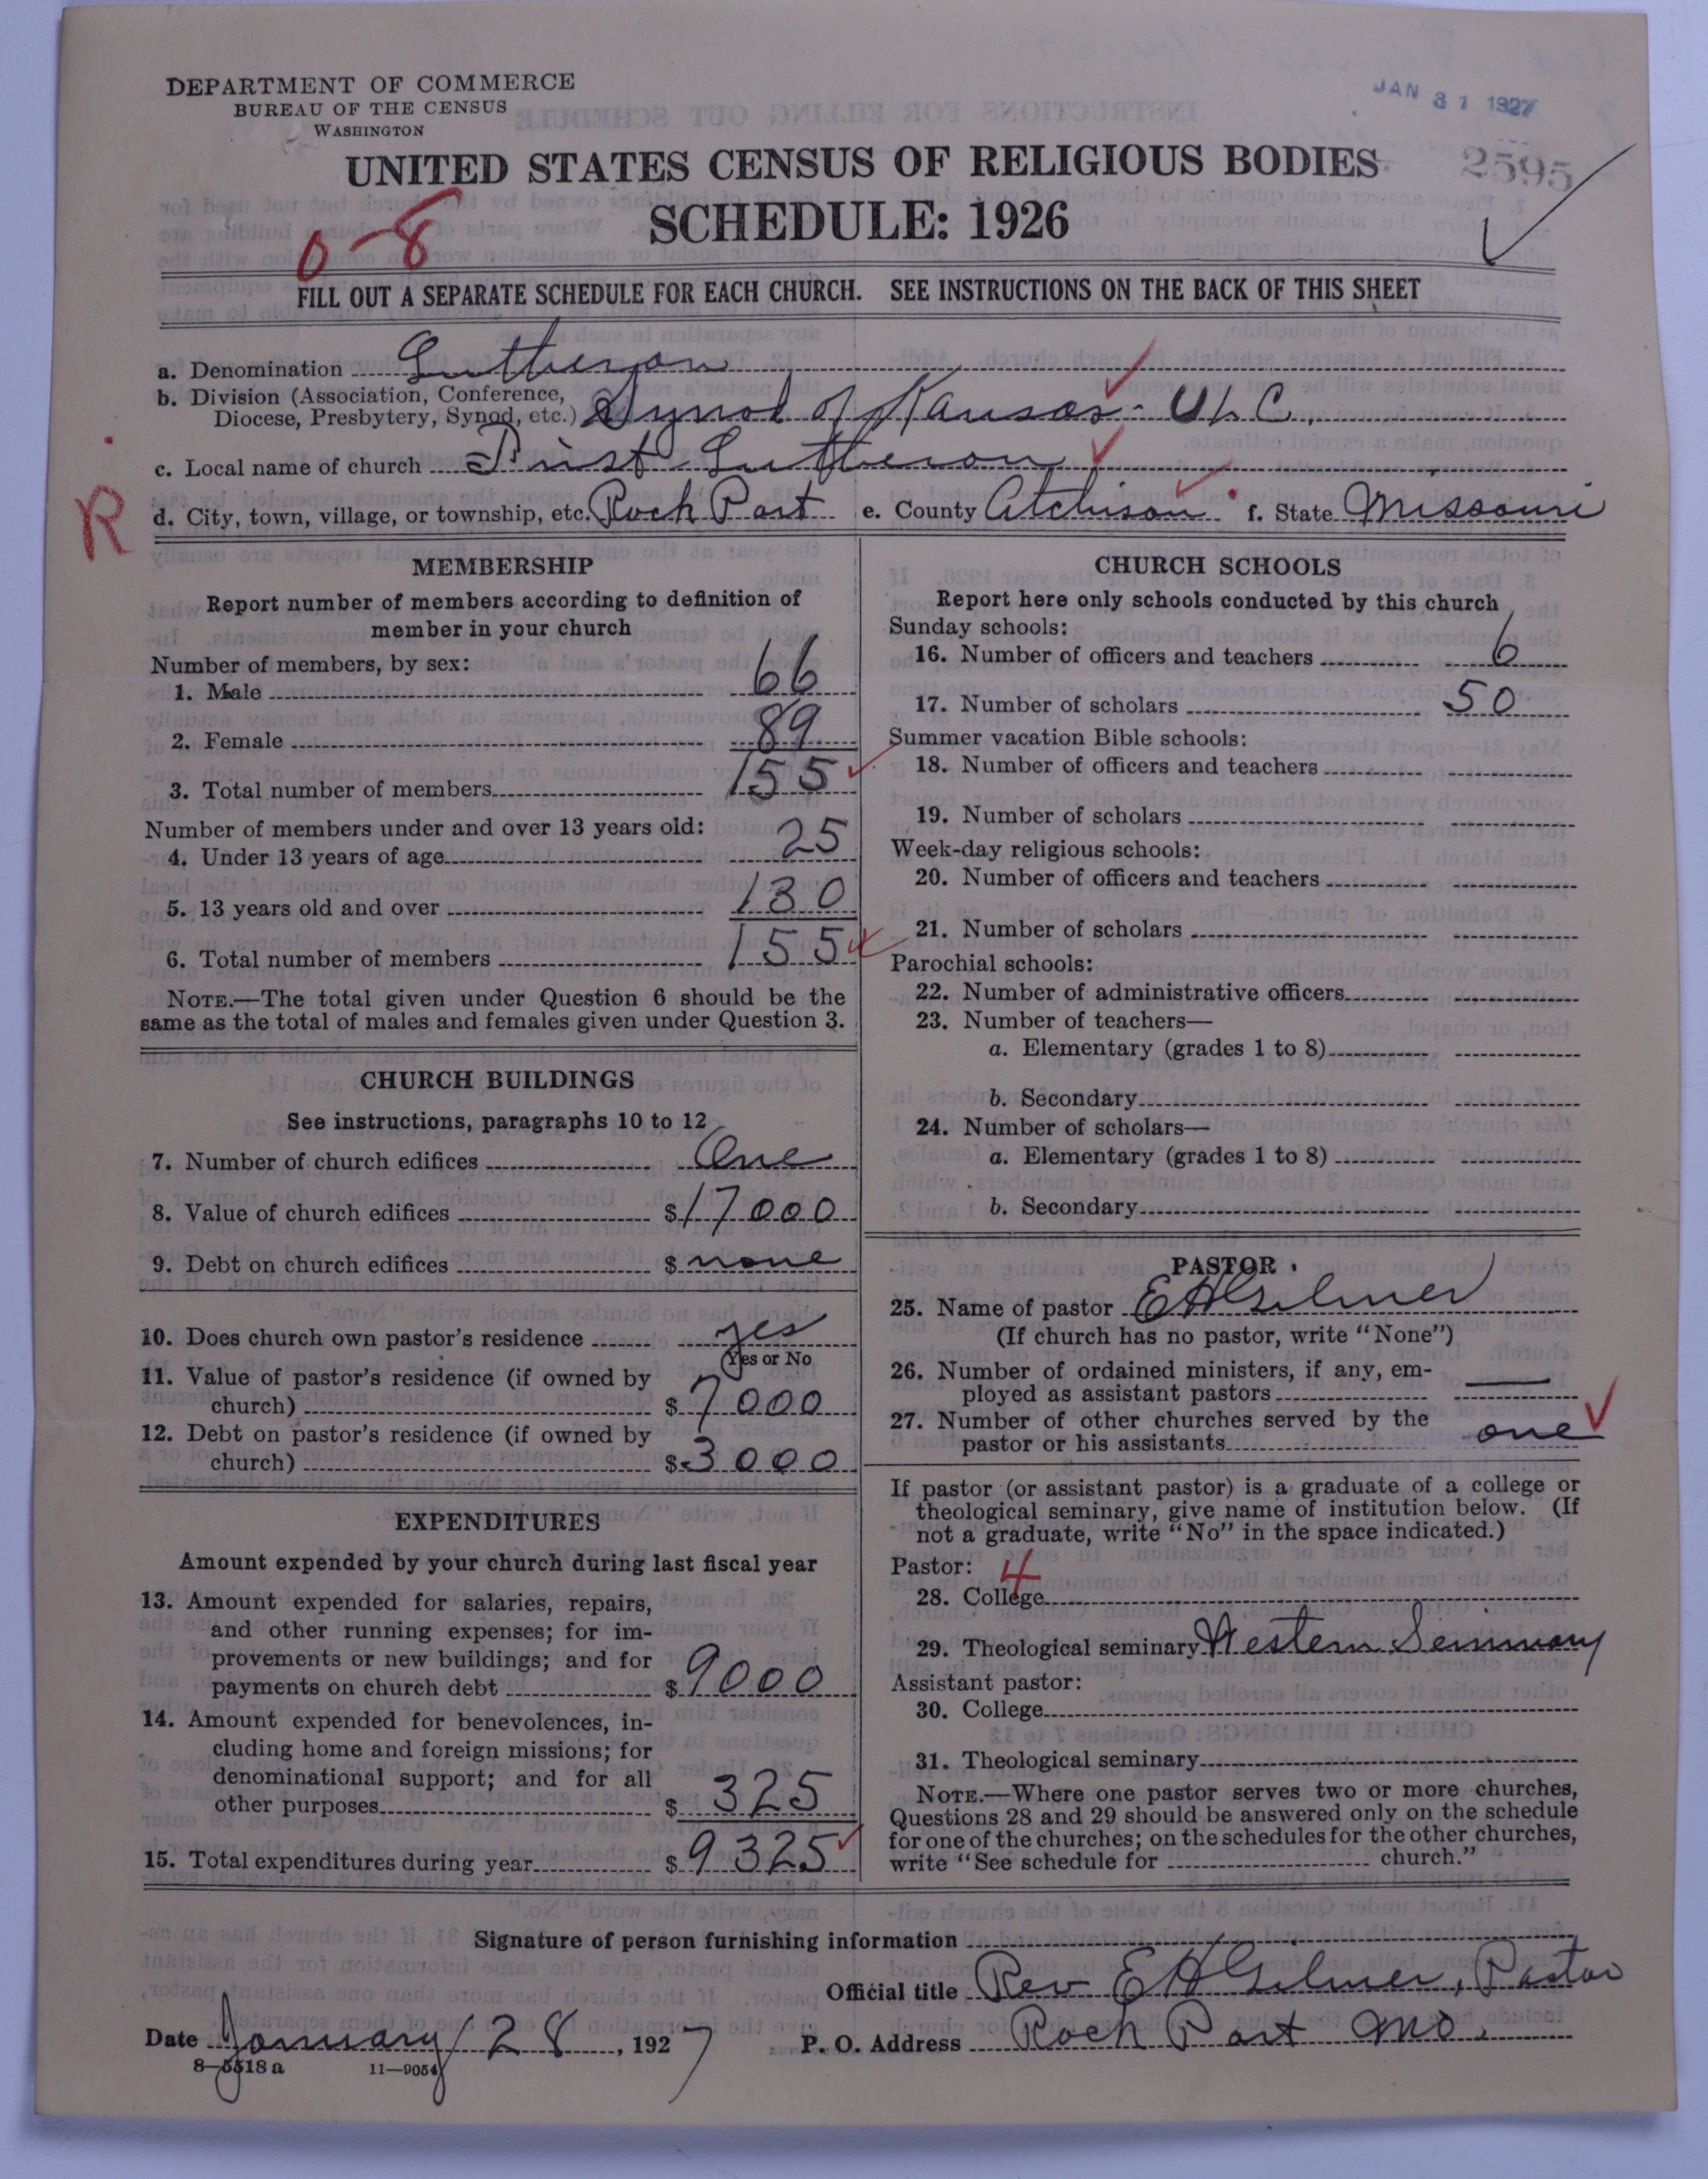 DEPARTMENT OF COMMERCE
BUREAU OF THE CENSUS
WASHINGTON
JAN 31 1927
2595
UNITED STATES CENSUS OF RELIGIOUS BODIES
SCHEDULE: 1926
0-8
FILL OUT A SEPARATE SCHEDULE FOR EACH CHURCH. SEE INSTRUCTIONS ON THE BACK OF THIS SHEET
a. Denomination Lutheran
b. Division (Association, Conference,
Diocese, Presbytery, Synod, etc.) Synod of Kansas - U L C
c. Local name of church First Lutheran
R
d. City, town, village, or township, etc. Rock Port e. County Atchison f. State Missouri
MEMBERSHIP
Report number of members according to definition of
member in your church
Number of members, by sex:
1. Male 66
2. Female 89
3. Total number of members 155
Number of members under and over 13 years old:
4. Under 13 years of age 25
5. 13 years old and over 130
6. Total number of members 155
NOTE.—The total given under Question 6 should be the
same as the total of males and females given under Question 3.
CHURCH BUILDINGS
See instructions, paragraphs 10 to 12
7. Number of church edifices One
8. Value of church edifices $17000
9. Debt on church edifices $ none
10. Does church own pastor's residence yes
(Yes or No
11. Value of pastor's residence (if owned by
church) $7000
12. Debt on pastor's residence (if owned by
church) $3000
EXPENDITURES
Amount expended by your church during last fiscal year
13. Amount expended for salaries, repairs,
and other running expenses; for im-
provements or new buildings; and for
payments on church debt $9000
14. Amount expended for benevolences, in-
cluding home and foreign missions; for
denominational support; and for all
other purposes $ 325
15. Total expenditures during year $9325
CHURCH SCHOOLS
Report here only schools conducted by this church
Sunday schools:
16. Number of officers and teachers 6
17. Number of scholars 50
Summer vacation Bible schools:
18. Number of officers and teachers
19. Number of scholars
Week-day religious schools:
20. Number of officers and teachers
21. Number of scholars
Parochial schools:
22. Number of administrative officers
23. Number of teachers—
a. Elementary (grades 1 to 8)
b. Secondary
24. Number of scholars—
a. Elementary (grades 1 to 8)
b. Secondary
PASTOR
25. Name of pastor E H Gilmer
(If church has no pastor, write "None")
26. Number of ordained ministers, if any, em-
ployed as assistant pastors —
27. Number of other churches served by the
pastor or his assistants one
If pastor (or assistant pastor) is a graduate of a college or
theological seminary, give name of institution below. (If
not a graduate, write "No" in the space indicated.)
Pastor: 4
28. College
29. Theological seminary Western Seminary
Assistant pastor:
30. College
31. Theological seminary
NOTE.—Where one pastor serves two or more churches,
Questions 28 and 29 should be answered only on the schedule
for one of the churches; on the schedules for the other churches,
write "See schedule for church."
Signature of person furnishing information
Official title Rev E H Gilmer, Pastor
Date January 28, 1927 P. O. Address Rock Port Mo.
8—5518 a 11—9054